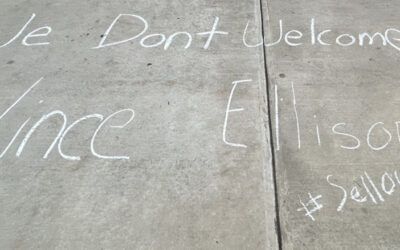 We Dont Welcome
Vince Ellison
#Sellou